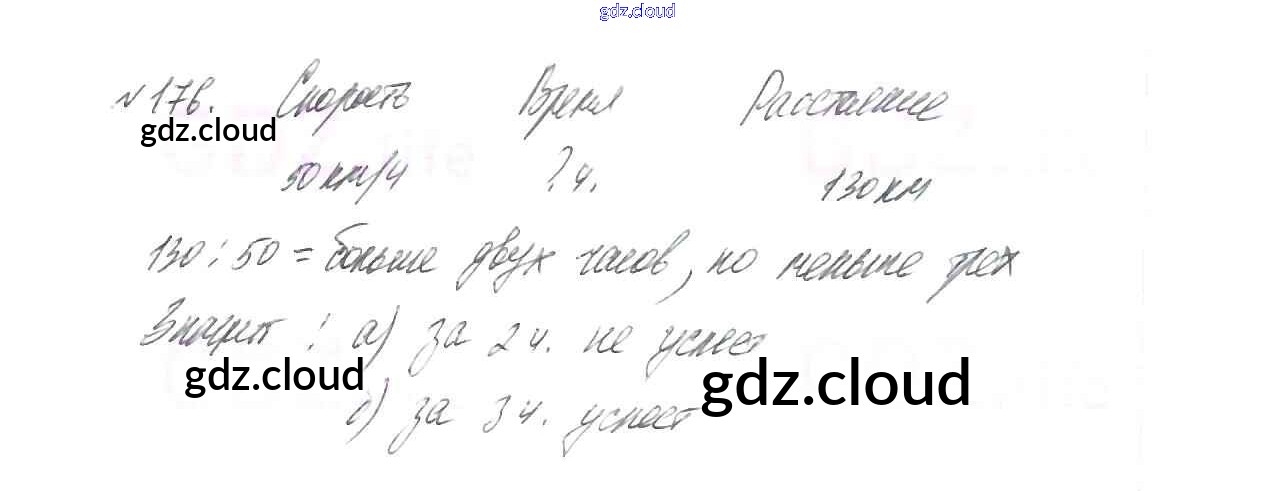 gdz.cloud
№176. Скорость Время Расстояние
gdz.cloud
50км/ч ? ч. 130км
130 : 50 = больше двух часов, но меньше трех
Значит : а) за 2 ч. не успеет
gdz.cloud
gdz.cloud
б) за 3 ч. успеет